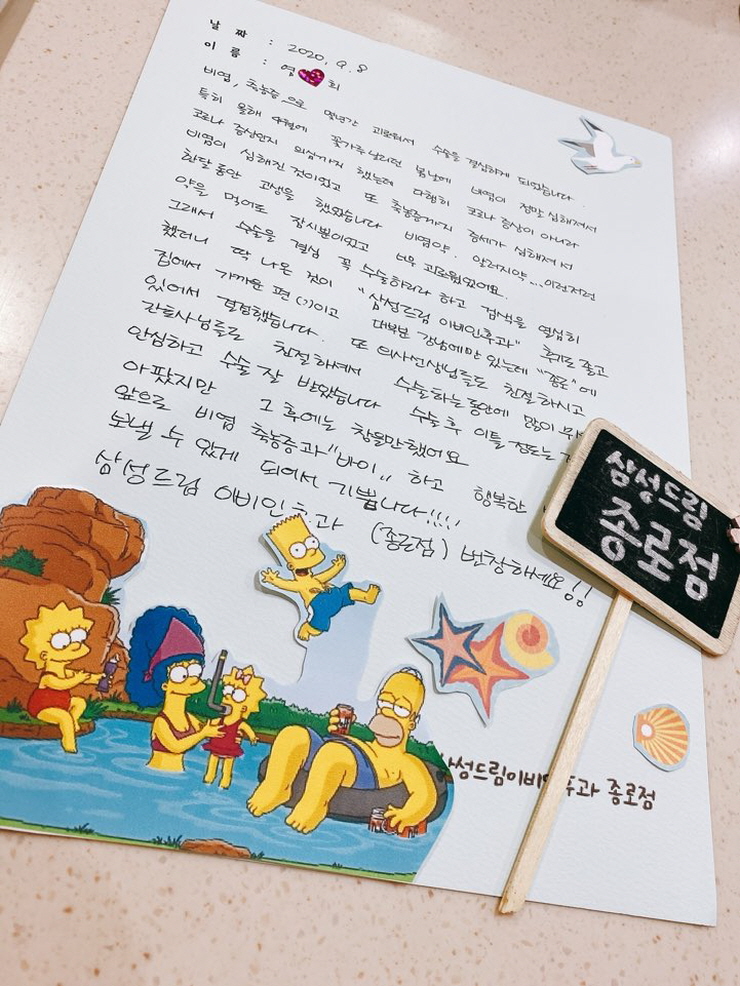 날 짜 : 2020. 9. 8
이 름 : 영 희
비염, 축농증으로 몇년간 괴로워서 수술을 결심하게 되었습니다.
특히 올해 4월에 꽃가루 날리던 봄날에 비염이 정말 심해져서
코로나 증상인지 의심까지 했는데 다행히 코로나 증상이 아니라
비염이 심해진 것이었고 또 축농증까지 증세가 심해져서
한달 동안 고생을 했었습니다 비염약. 알러지약...이런저런
약을 먹어도 잠시뿐이었고 너무 괴로웠었어요.
그래서 수술을 결심 꼭 수술하리라 하고 검색을 열심히
했더니 딱 나온 것이 "삼성드림 이비인후과" 후기도 좋고
집에서 가까운 편(?)이고 대부분 강남에만 있는데 "종로"에
있어서 결정했습니다. 또 의사선생님들도 친절하시고
간호사님들도 친절하셔서 수술하는 동안에 많이
안심하고 수술 잘 받았습니다 수술 후 이틀 정도는
아팠지만 그 후에는 참을만했어요
앞으로 비염 축농증과 "바이" 하고 행복한
보낼 수 있게 되어서 기쁩니다!!!!
삼성드림 이비인후과 (종로점) 번창하세요!!
삼성드림
종로점
삼성드림이비인후과 종로점